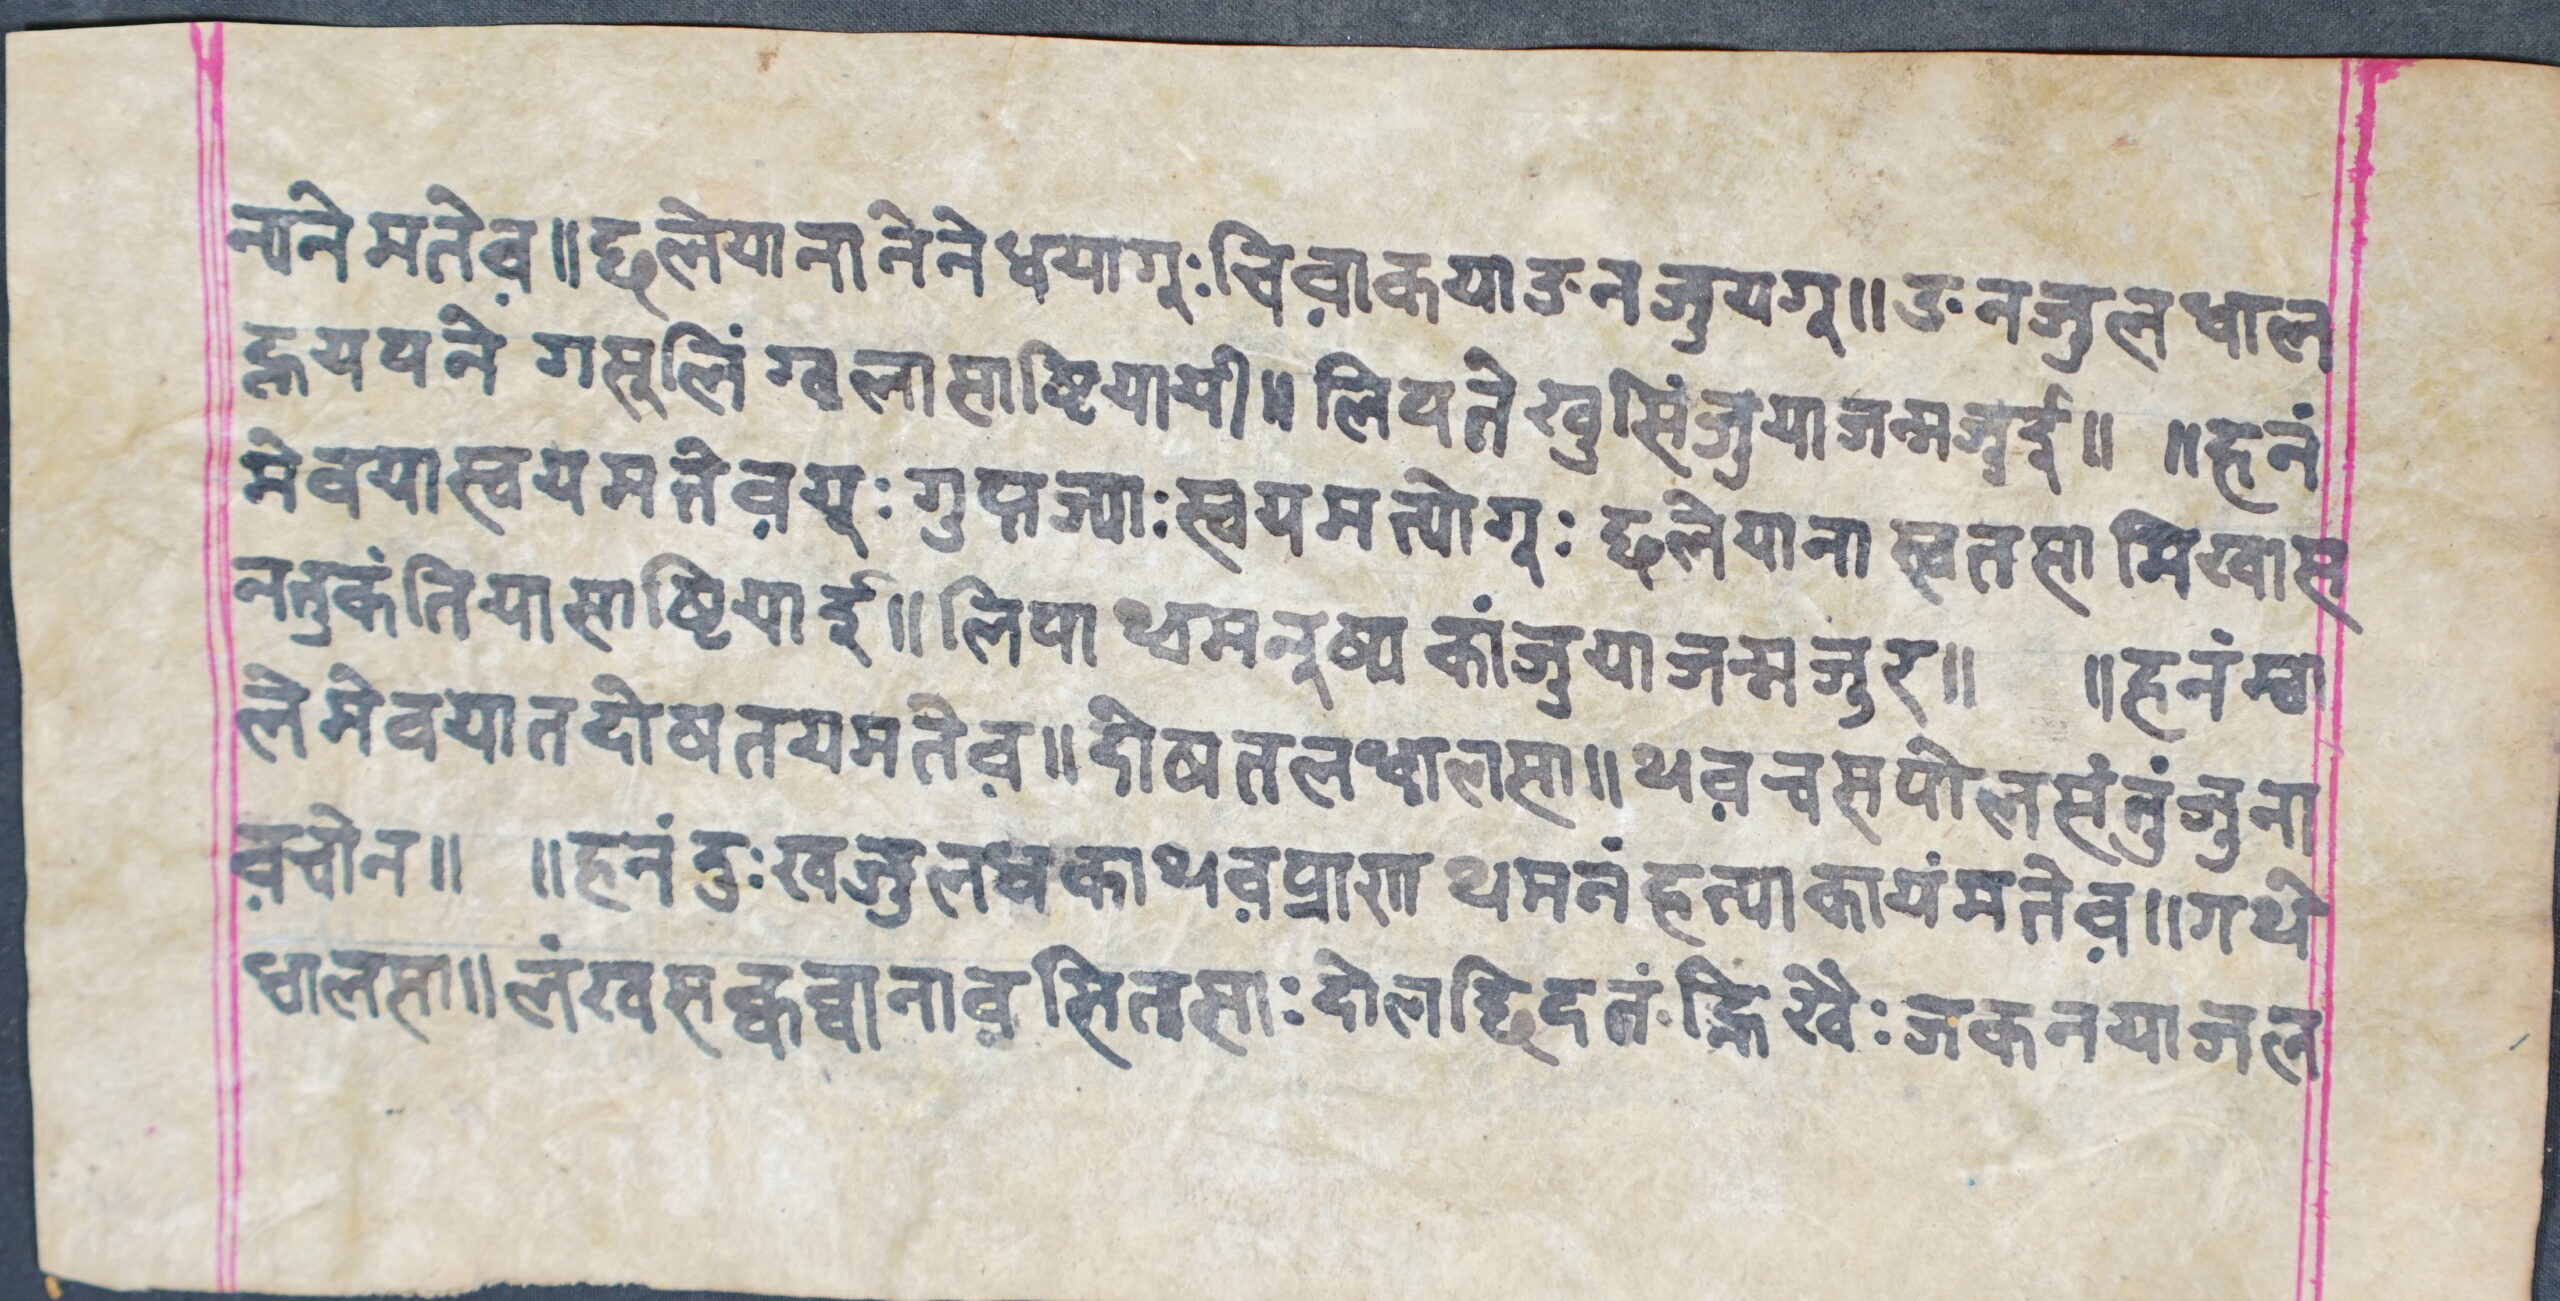 न्यने मतेव़॥ छलेयाना नेने धयागूः चिव़ाकया ङन जुयगू॥ ङन जुल धाल
ह्लयपने गसुलिं ग्वलासाष्टियायी॥ लिपते खुसिं जुया जन्म जूई॥ ॥ हनं
मेवया स्वय मतेव़यूः गुप्तज्याः स्वय मत्योगूः छलेयाना स्वतसा मिखास
नतुकं तियासाष्टियाई॥ लिपा थ्व मनूष्य कां जुया जन्म जुर॥ ॥ हनं म्वा
ले मेवयात दोष तय मतेव़॥ दोष तल धालसा॥ थव़ च्वसपोलसं तुं जुना
व़चोन॥ ॥ हनं दुःख जुल धका थव़ प्राण थमनं हत्याकायं मतेव़॥ गथे
धालसा॥ लंखस क्वब्वानाव़ सितसाः दोलछिदतं ह्निखेंः जकनयाजल